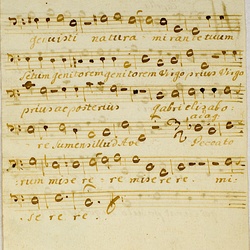 genuisti natura mirante tuum
Sctum genitorem genitorem Virgo prius Virgo
prius ac posterius Gabrielis ab o
adag
re sumens illud Ave Peccato
rum misere re miserere. mi
se re re.